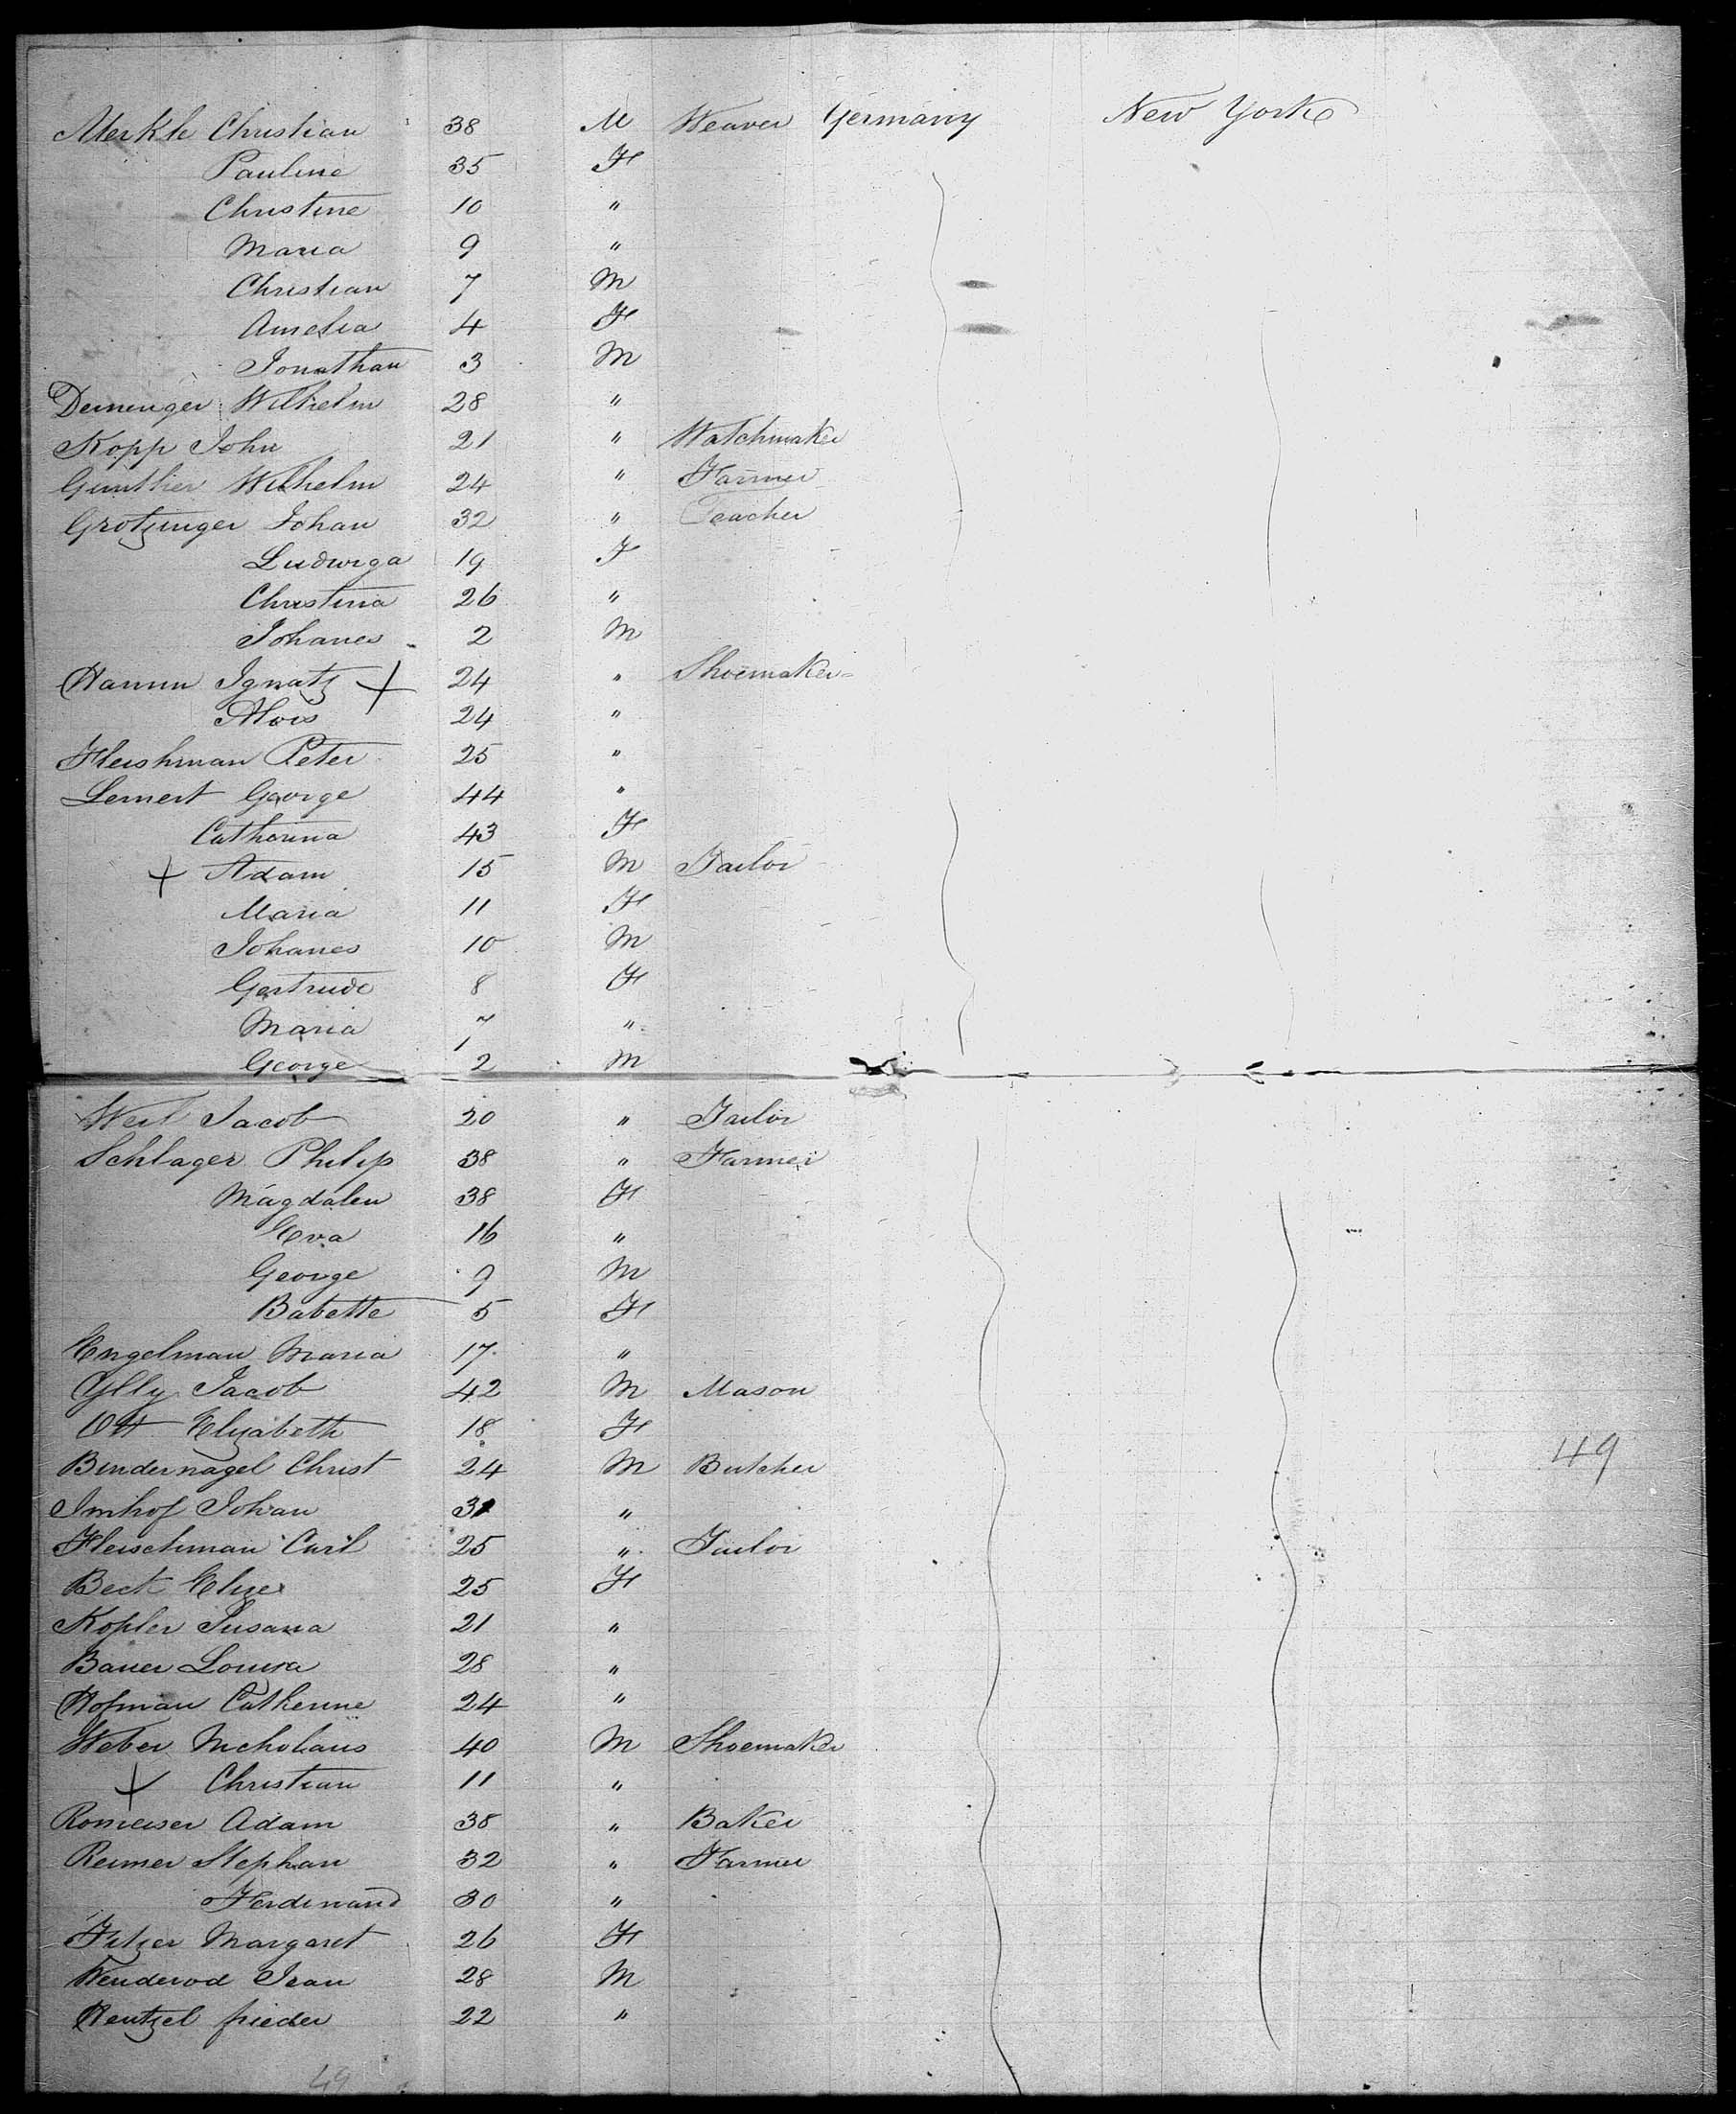 Merkle Christian 38 M Weaver Germany New York
Pauline 35 F
Christine 10 "
Maria 9 "
Christian 7 M
Amelia 4 F
Jonathan 3 M
Demenger Wilhelm 28 "
Kopp John 21 " Watchmaker
Gunther Wilhelm 24 " Farmer
Grotzinger Johan 32 " Teacher
Ludwiga 19 F
Christina 26 "
Johanes 2 M
Hamm Ignatz + 24 " Shoemaker
Alois 24 "
Fleishman Peter 25 "
Lemert George 44 "
Catharina 43 F
+ Adam 15 M Tailor
Maria 11 F
Johanes 10 M
Gertrude 8 F
Maria 7 "
George 2 M
Weil Jacob 20 " Tailor
Schlager Philip 38 " Farmer
Magdalen 38 F
Eva 16 "
George 9 M
Babette 5 F
Engelman Maria 17 "
Jacob 42 M Mason
Ott Elizabeth 18 F
Bindernagel Christ 24 M Butcher
49
Imhof Johan 31 "
Fleischman Carl 25 " Tailor
Beck Elize 25 F
Kopler Susana 21 "
Bauer Louisa 28 "
Hofman Catherine 24 "
Weber Nicholaus 40 M Shoemaker
+ Christian 11 "
Romeiser Adam 38 " Baker
Reimer Stephan 32 " Farmer
Ferdinand 30 "
Fitzer Margaret 26 F
Wenderod Jean 28 M
Hentzel frieder 22 "
49